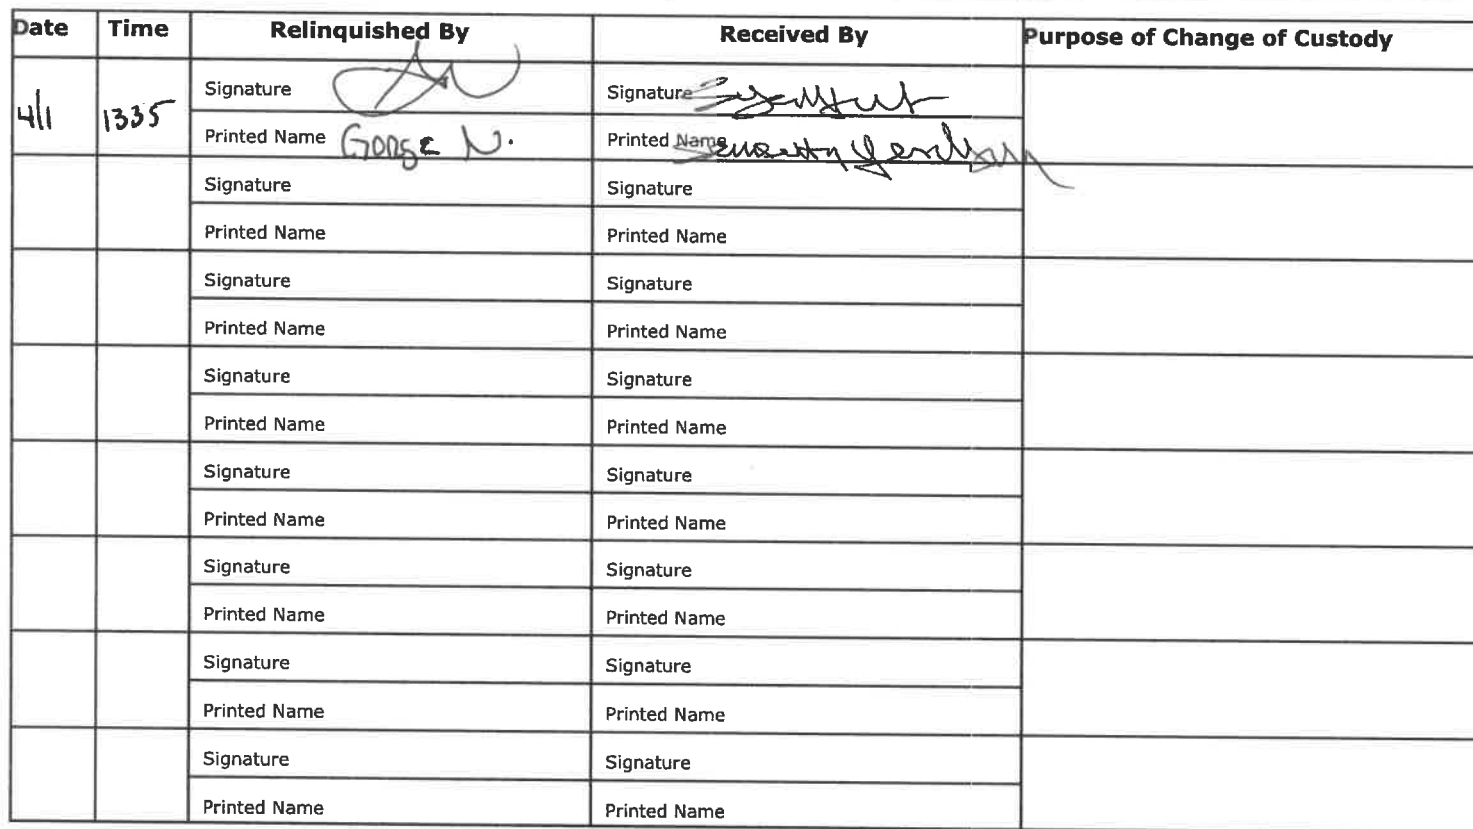 Date Time Relinquished By Received By Purpose of Change of Custody
Signature Signature
4/1 1335
Printed Name George N. Printed Name
Signature Signature
Printed Name Printed Name
Signature Signature
Printed Name Printed Name
Signature Signature
Printed Name Printed Name
Signature Signature
Printed Name Printed Name
Signature Signature
Printed Name Printed Name
Signature Signature
Printed Name Printed Name
Signature Signature
Printed Name Printed Name